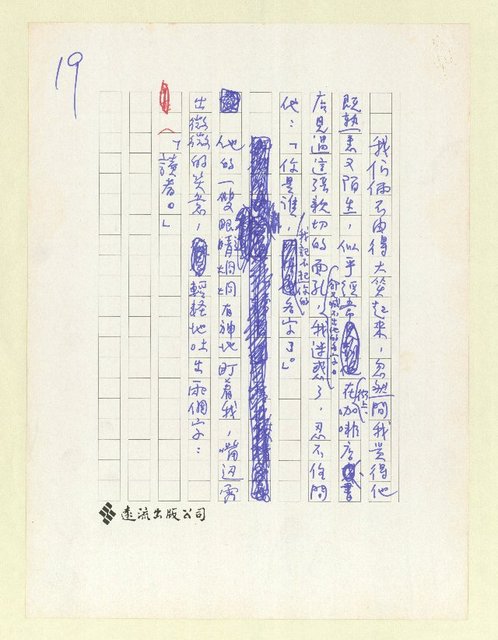 19
我们倆不由得大笑起來，忽然間我覺得他
既熟悉又陌生，似乎經常在街上、在咖啡店、書
店見過這張親切的面孔，卻又喚不出他的名字。我迷惑了，忍不住問
他：「你是誰，我記不起你的名字了。」
他的一雙眼睛炯炯有神地盯著我，嘴边露
出微微的笑意，輕輕地吐出兩個字：
「讀者。」
遠流出版公司